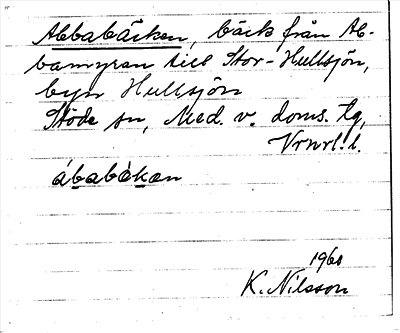 Abbabäcken, bäck från Ab-
bamyran till Stor-Hullsjön,
byn Hullsjön
Stöde sn, Med. v. doms. tg,
Vrnrl. l.
ábabäkan
1960
K. Nilsson